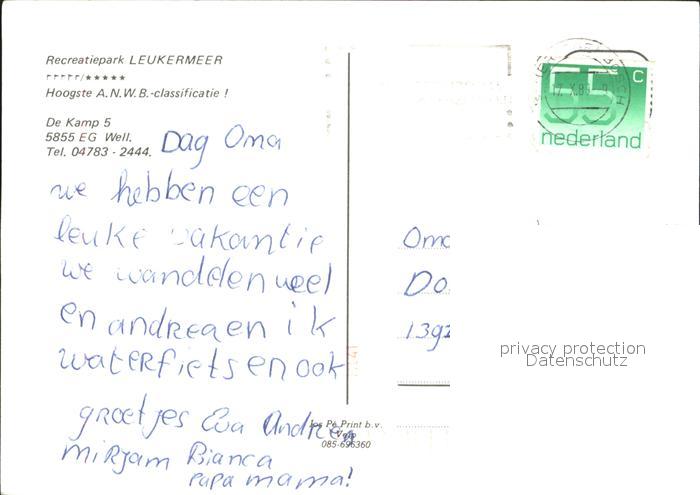 Recreatiepark LEUKERMEER
Hoogste A.N.W.B.-classificatie !
De Kamp 5
5855 EG Well.
Tel. 04783 - 2444.
Dag Oma
we hebben een
leuke vakantie
we wandelen veel
en andrea en ik
waterfietsen ook
groetjes Eva Andrea
mirjam Bianca
papa mama!
Jos Pé Print b.v.
085-696360
55 c
nederland
Oma
Do
139
privacy protection
Datenschutz